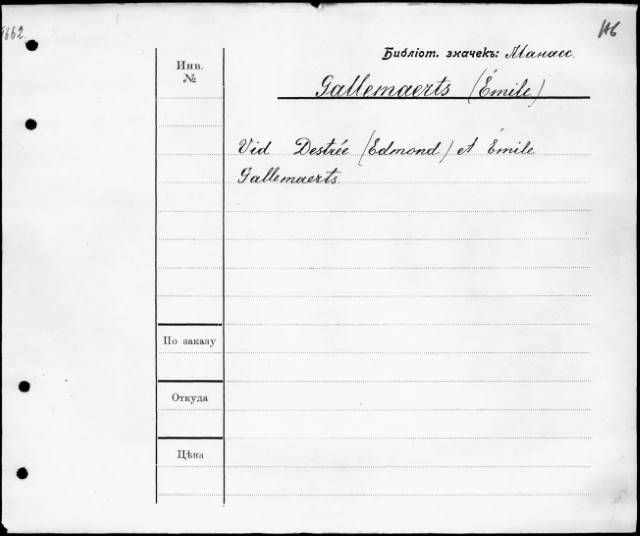 9662.
116
Библіот. значекъ: Манасс.
Инв.
№
Gallemaerts (Émile)
Vid. Destrée (Edmond) et Émile
Gallemaerts.
По заказу
Откуда
Цѣна